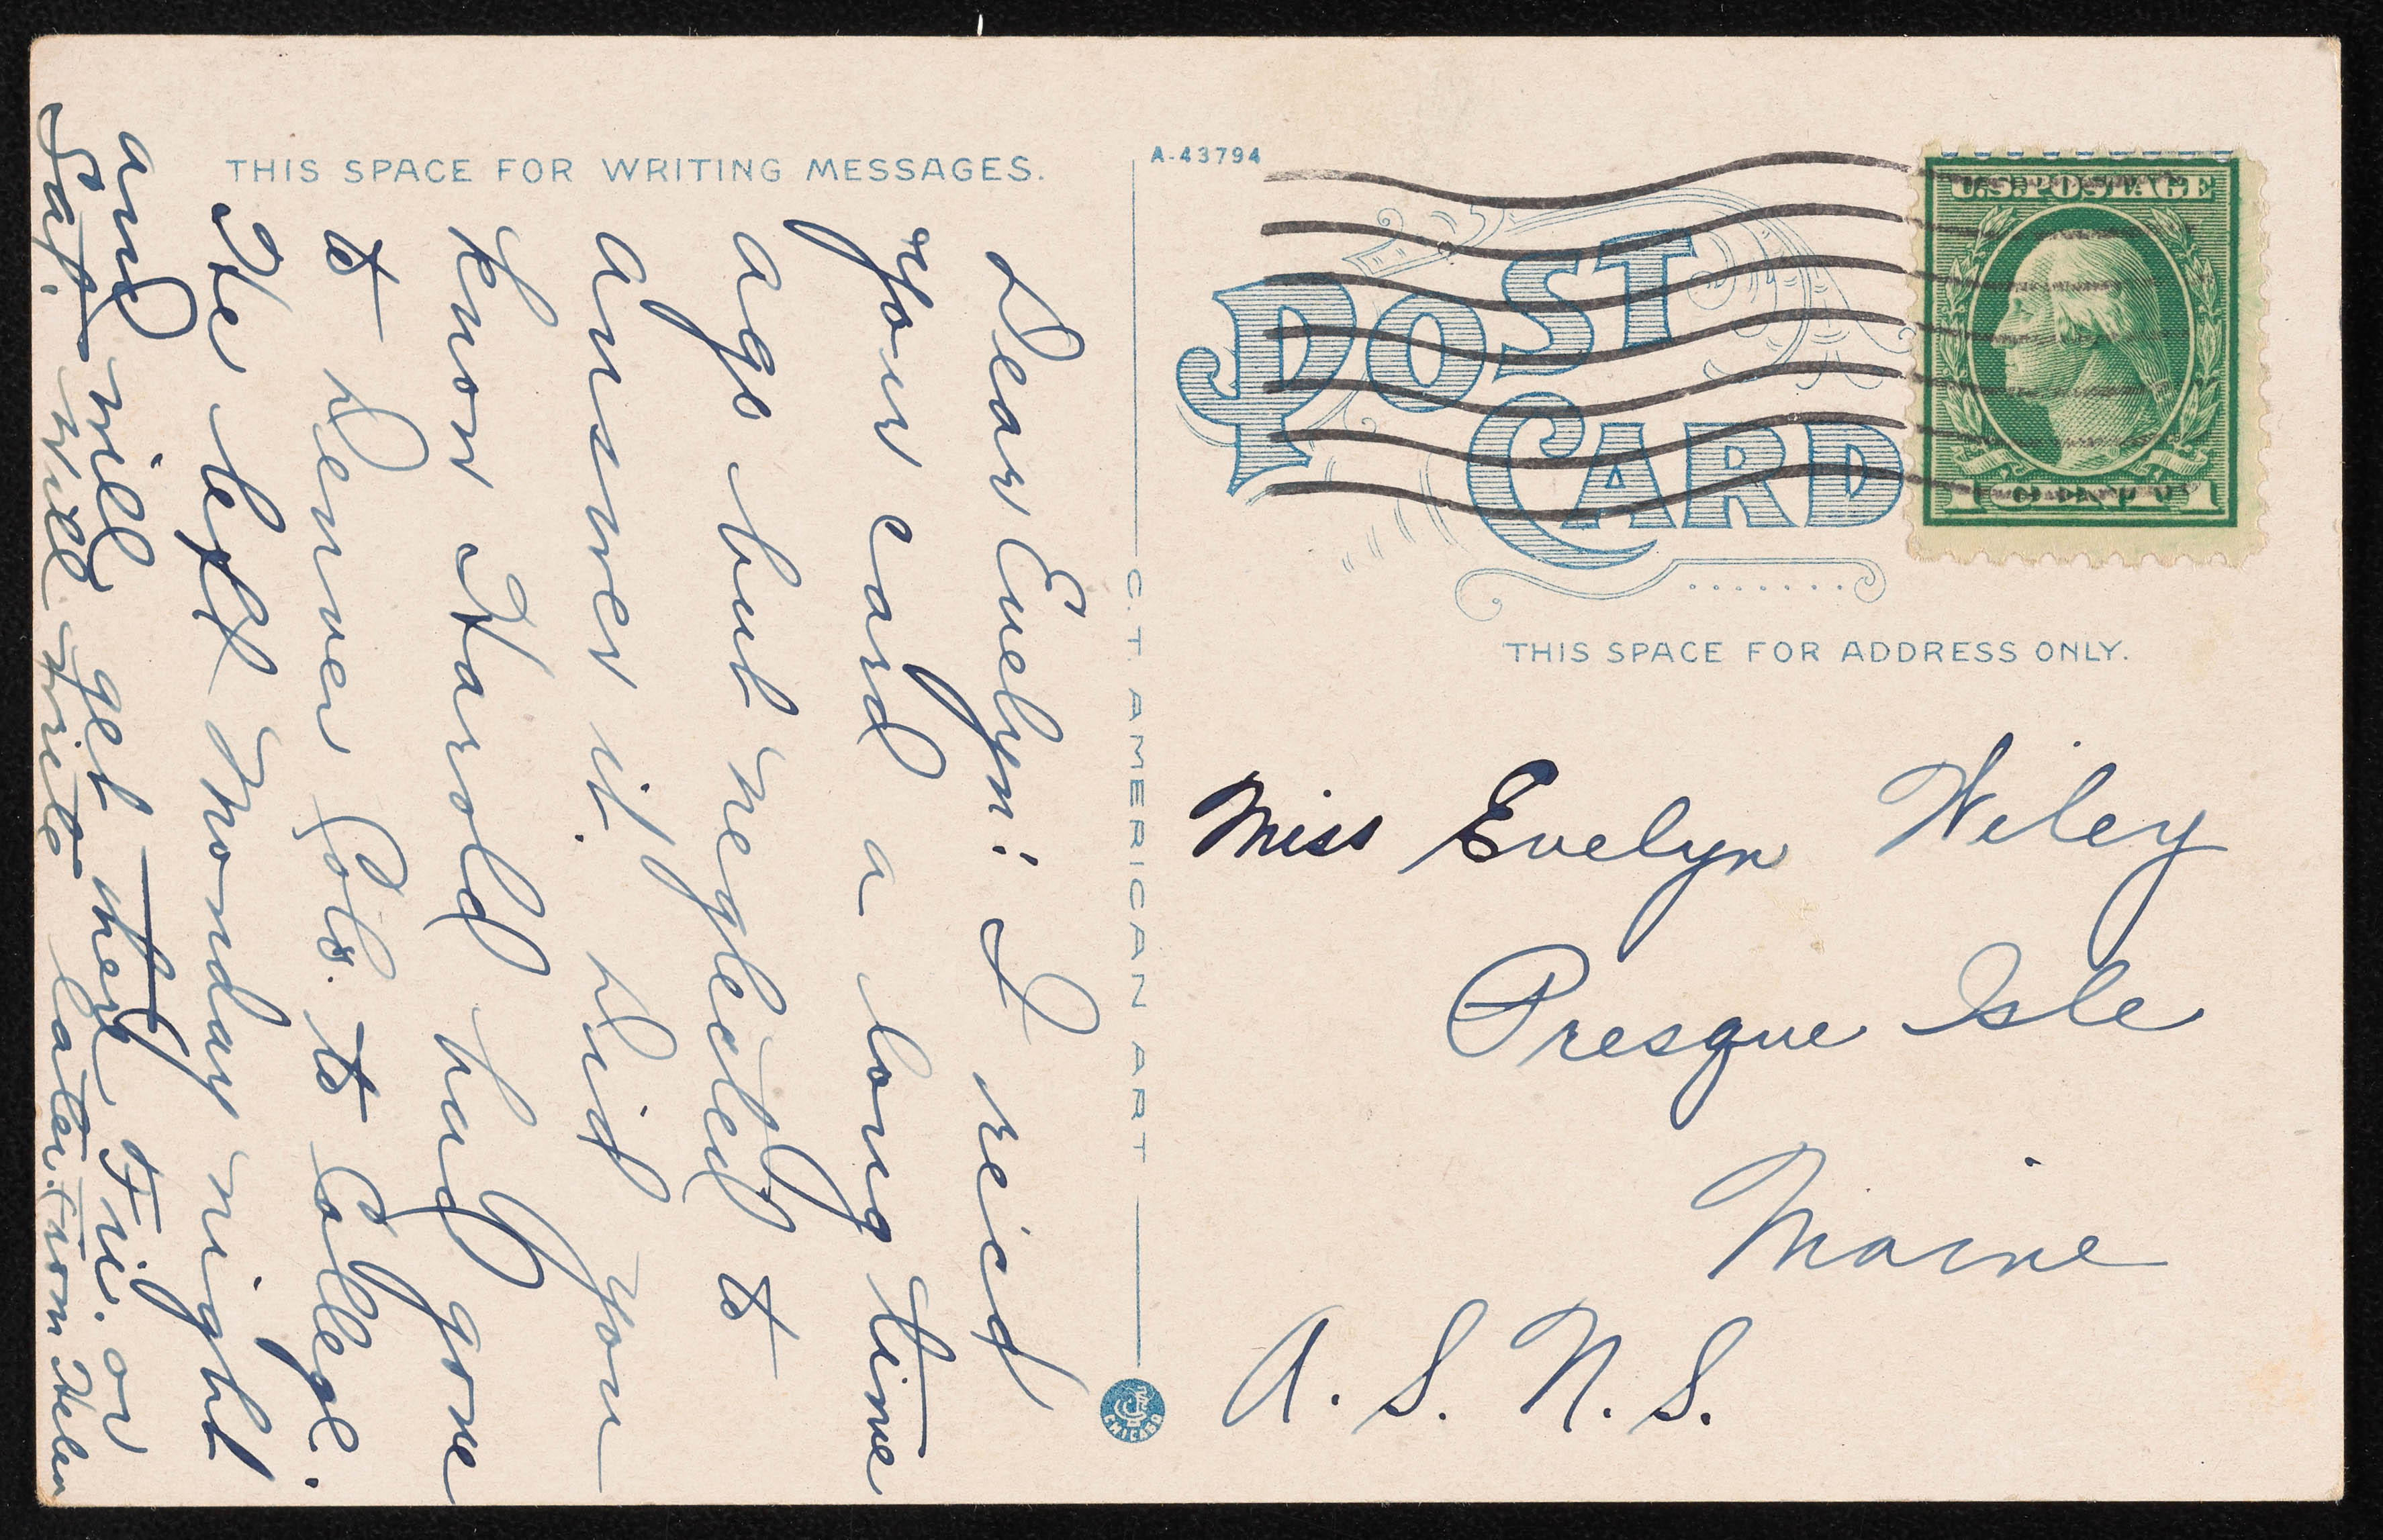 THIS SPACE FOR WRITING MESSAGES.
Dear Evelyn: I rec'd
your card a long time
ago but neglected to
answer it. Did you
know Harold had gone
to Denver Colo. to College.
He left Monday night
and will get there Fri. or
Sat. Will write later. From Helen
A-43794
POST
CARD
C. T. AMERICAN ART
CHICAGO
U.S. POSTAGE
1 CENT 1
THIS SPACE FOR ADDRESS ONLY.
Miss Evelyn Wiley
Presque Isle
Maine
A. S. N. S.